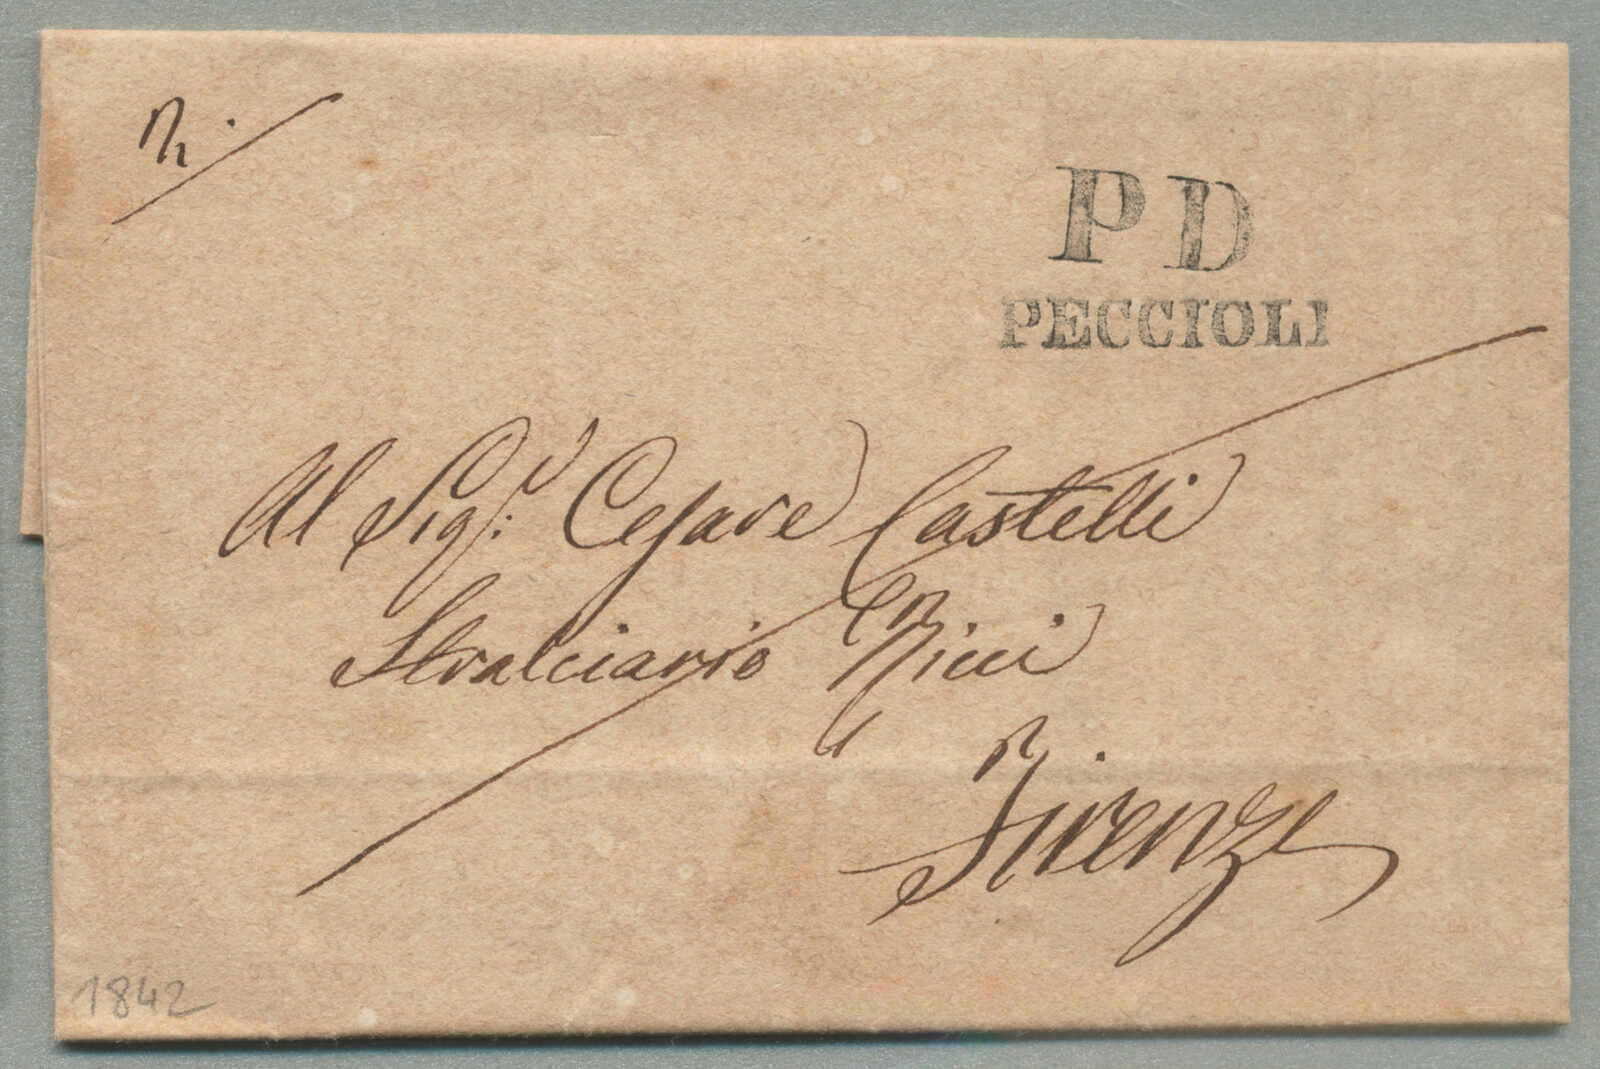 P D
PECCIOLI
Al Sig:r Cesare Castelli
Stralciario Ricci
Firenze
1842